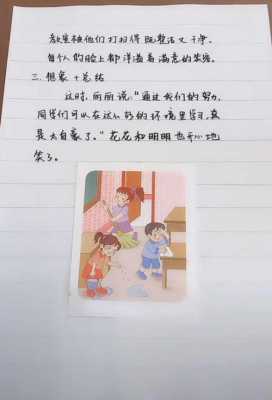 教室被他们打扫得既整洁又干净。
每个人的脸上都洋溢着满意的笑容。
三、想象+总结
这时，丽丽说：“通过我们的努力，
同学们可以在这么好的环境里学习，真
是太自豪了。”花花和明明也开心地
笑了。